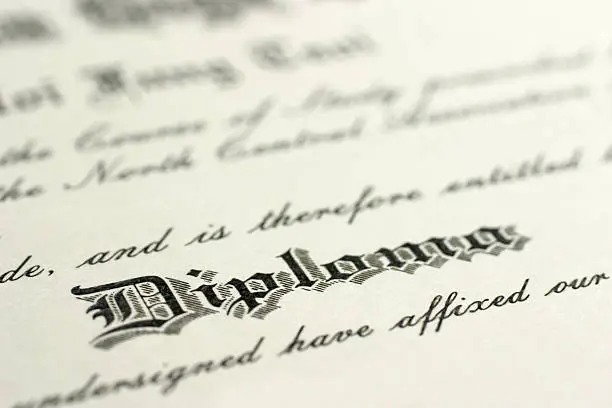 the Course of Study prescribed
the North Central Association
de, and is therefore entitled
Diploma
undersigned have affixed our